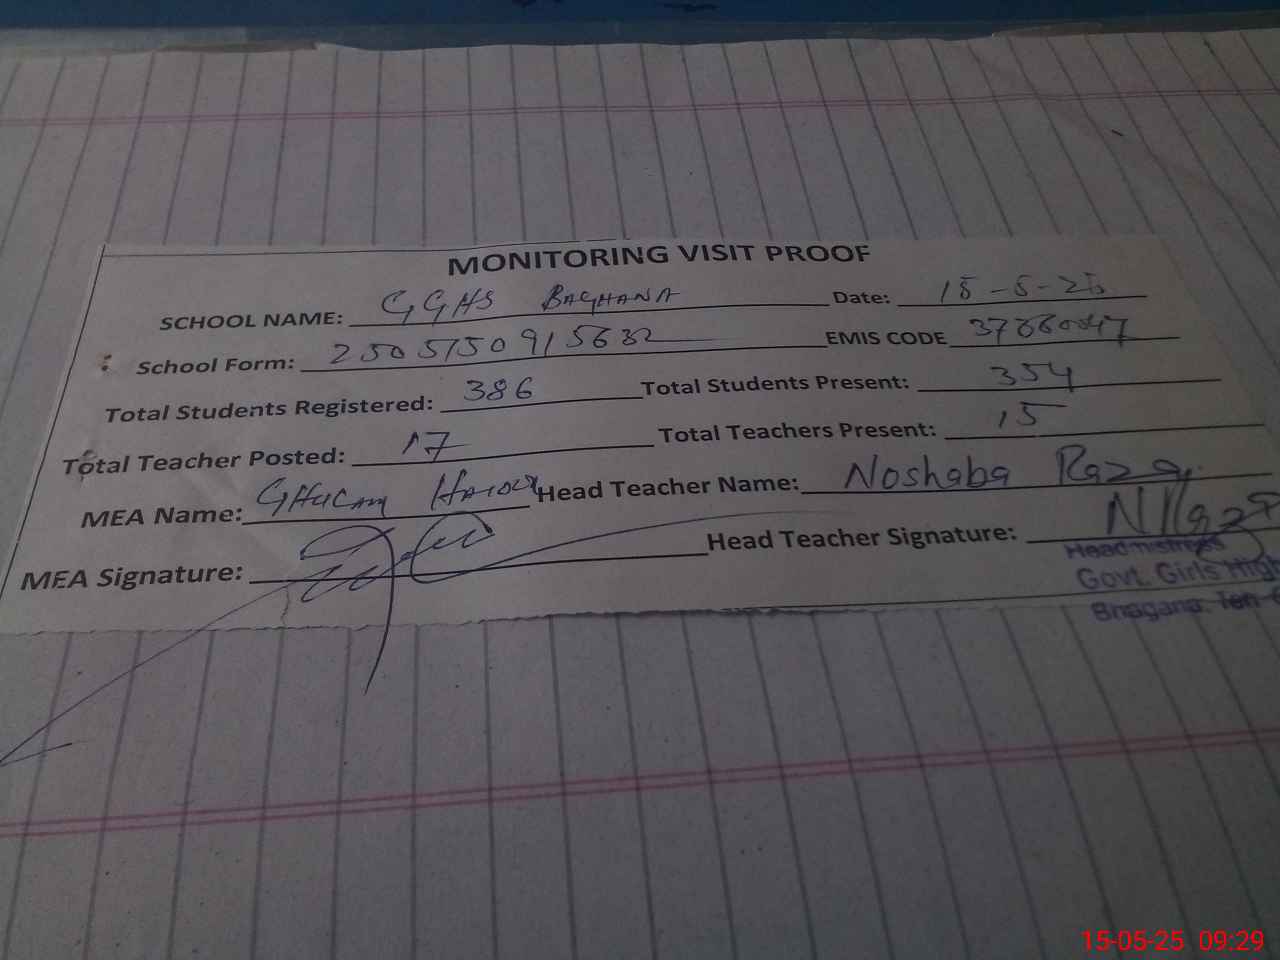 MONITORING VISIT PROOF
SCHOOL NAME: GGHS BAGHANA Date: 15-5-25
School Form: 2505150915632 EMIS CODE 37330047
Total Students Registered: 386 Total Students Present: 354
Total Teacher Posted: 17 Total Teachers Present: 15
MEA Name: GHULAM HAIDER Head Teacher Name: Noshaba Raza
MEA Signature: Head Teacher Signature: NRaza
Headmistress
Govt. Girls High
Bhagana.
15-05-25 09:29